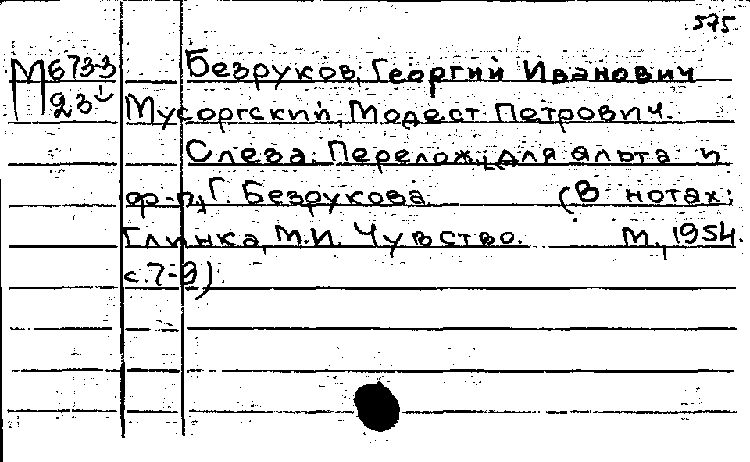 575
М673-3 Безруков, Георгий Иванович
23 Мусоргский, Модест Петрович.
Слеза. Перелож. для альта и
ф-п. Г. Безрукова. (В нотах:
Глинка, М.И. Чувство. М., 1954.
с.7-9)